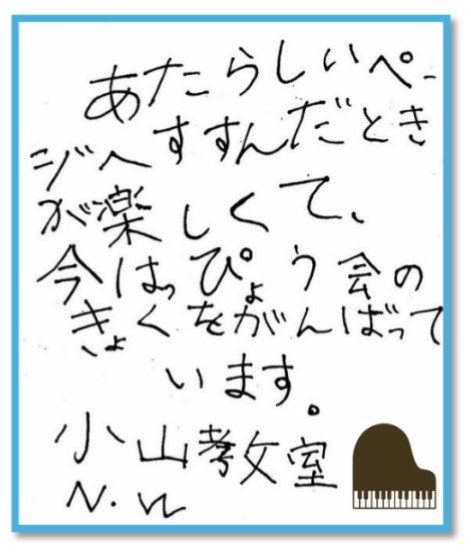 あたらしいペー
ジへすすんだとき
が楽しくて、
今はっぴょう会の
きょくをがんばって
います。
小山教室
N.W